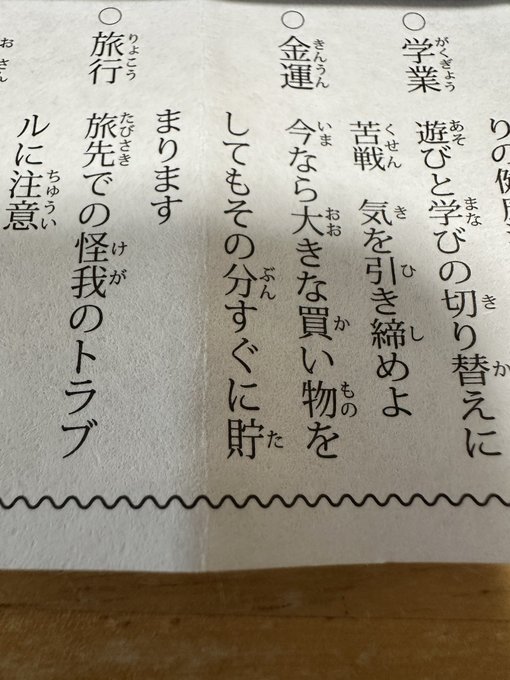 りの
○学業 遊びと学びの切り替えに
苦戦 気を引き締めよ
○金運 今なら大きな買い物を
してもその分すぐに貯
まります
○旅行 旅先での怪我のトラブ
ルに注意